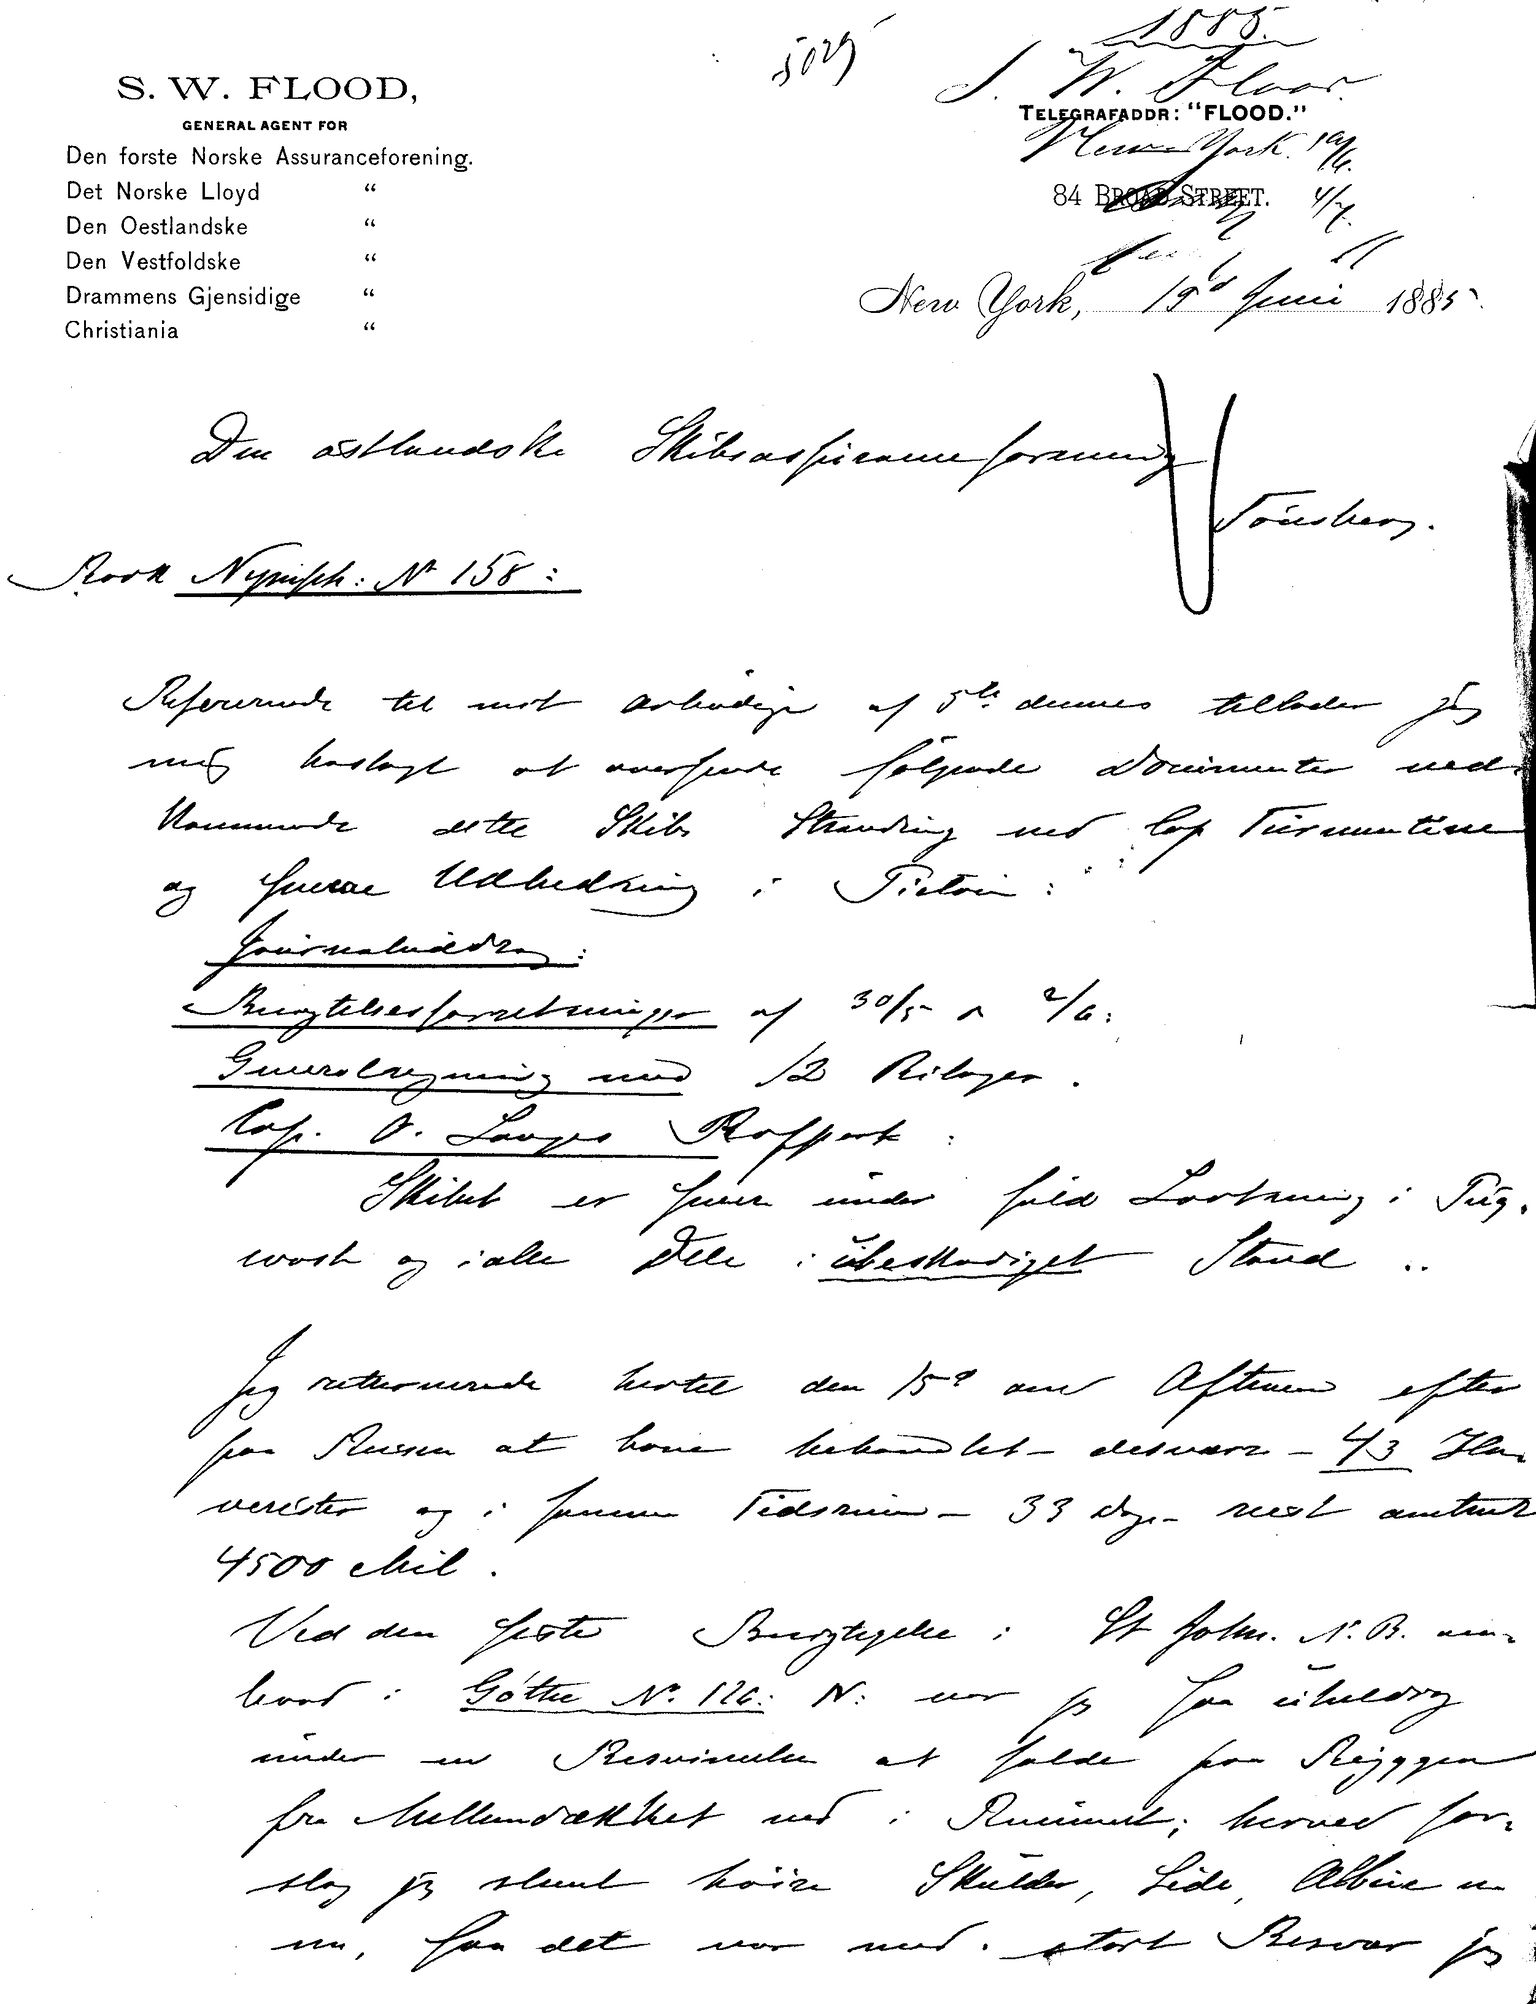 1885.
S. W. Flood.
S. W. FLOOD,
GENERAL AGENT FOR
Den forste Norske Assuranceforening.
Det Norske Lloyd "
Den Oestlandske "
Den Vestfoldske "
Drammens Gjensidige "
Christiania "
TELEGRAFADDR: "FLOOD."
New York. 19/6.
84 BROAD STREET. 4/7.
New York, 19d Juni 1885
Den østlandske Skibsassuranceforening
Tönsberg.
Bark Nymph: No 158:
Refererende til mit ærbødige af 5te dennes tillader jeg
mig herlagt at oversende følgende Documenter ved-
kommende dette Skibs Stranding ved Cap Turmentine
og senere Udbedring i Pictou:
Journaluddrag:
Besigtelsesforretninger af 30/5 & 2/6:
Generalregning med 12 Bilager.
Cap. O. Langes Rapport:
Skibet er senere under fuld Lastning i Pug-
wash og i alle Dele i übeskadiget Stand ..
Jeg returnerede hertil den 15d om Aftenen efter
paa Reisen at have behandlet - desværre - 43 Ha-
verister og i samme Tidsrum - 33 Dage - reist omtrent
4500 Mil.
Ved den første Besigtigelse i St John. N. B. om-
bord i Göthe No. 126: N: var jeg saa üheldig
under en Besvimelse at falde paa Ryggen
fra Mellemdækket ned i Rummet; herved for-
slog jeg slemt høire Skulder, Side, Albue m
m, saa det var med stort Besvær jeg